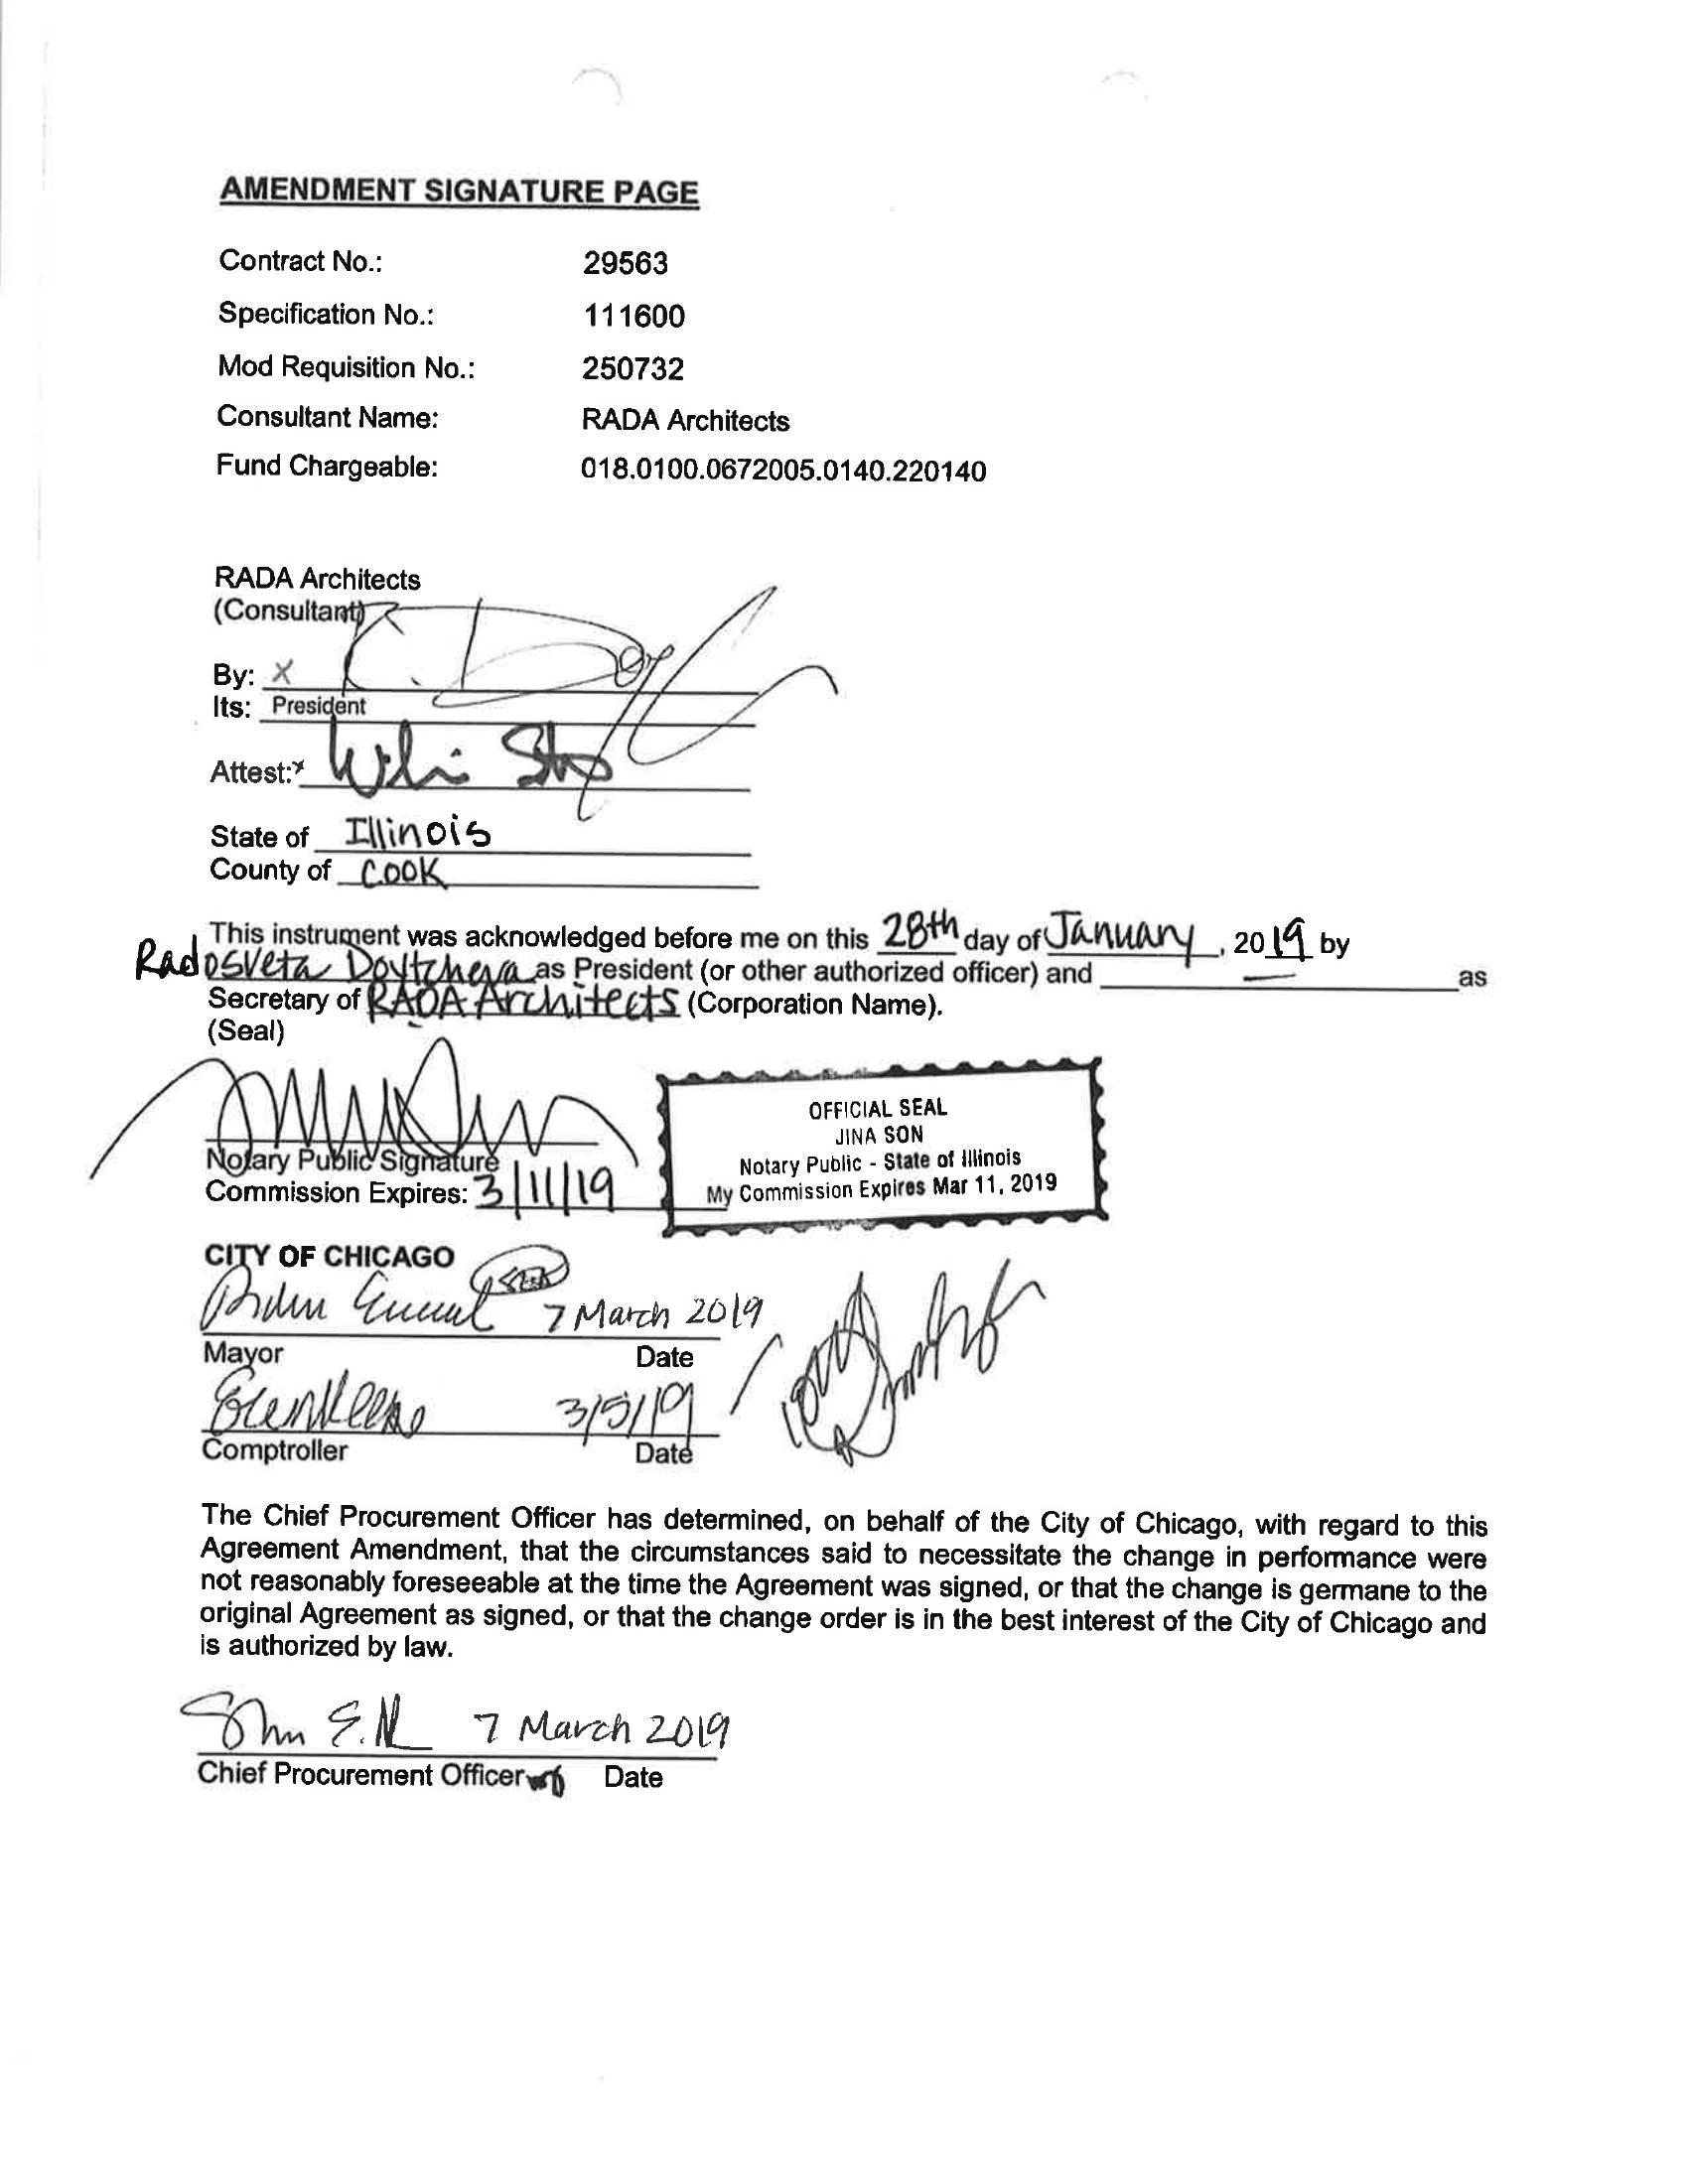 AMENDMENT SIGNATURE PAGE
Contract No.: 29563
Specification No.: 111600
Mod Requisition No.: 250732
Consultant Name: RADA Architects
Fund Chargeable: 018.0100.0672005.0140.220140
RADA Architects
(Consultant)
By: X
Its: President
Attest:x
State of Illinois
County of COOK
This instrument was acknowledged before me on this 28th day of January, 2019 by
Radosveta Doytcheva as President (or other authorized officer) and — as
Secretary of RADA Architects (Corporation Name).
(Seal)
OFFICIAL SEAL
JINA SON
Notary Public - State of Illinois
My Commission Expires Mar 11, 2019
Notary Public Signature
Commission Expires: 3/11/19
CITY OF CHICAGO
7 March 2019
Mayor Date
3/5/19
Comptroller Date
The Chief Procurement Officer has determined, on behalf of the City of Chicago, with regard to this
Agreement Amendment, that the circumstances said to necessitate the change in performance were
not reasonably foreseeable at the time the Agreement was signed, or that the change is germane to the
original Agreement as signed, or that the change order is in the best interest of the City of Chicago and
is authorized by law.
7 March 2019
Chief Procurement Officer Date